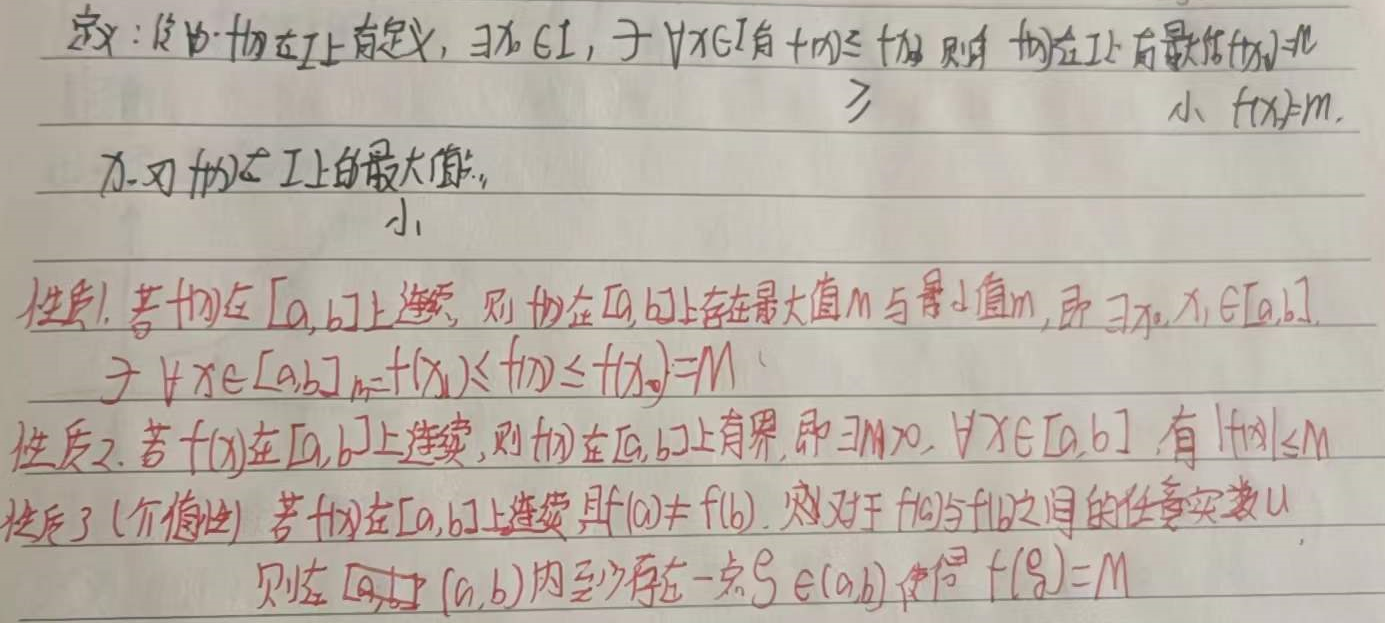 定义:设 y=f(x)在I上有定义, ∃x₀∈I, ∋ ∀x∈I有 f(x)≤f(x₀) 则称 f(x)在I上有最大值f(x₀)=M
≥ 小 f(x₀)=m.
f(x)在 I上的最大值
小
性质1. 若f(x)在[a,b]上连续, 则 f(x)在[a,b]上存在最大值M与最小值m, 即 ∃x₀, x₁∈[a,b].
∋ ∀x∈[a,b] m=f(x₁)≤f(x)≤f(x₀)=M
性质2. 若f(x)在[a,b]上连续,则f(x)在[a,b]上有界,即∃M>0, ∀x∈[a,b], 有 |f(x)|≤M
性质3 (介值性) 若f(x)在[a,b]上连续且f(a)≠f(b). 则对于f(a)与f(b)之间的任意实数u
则在 (a,b)内至少存在一点ξ∈(a,b) 使得 f(ξ)=M